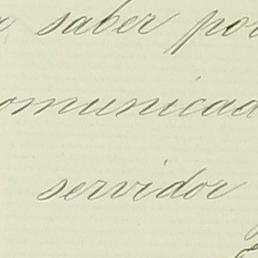 saber por
omunicad
servidor